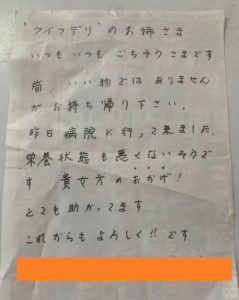 ライフデリのお姉さま
いつもいつもごちそうさまです
筍、いい物ではありません
がお持ち帰り下さい。
昨日病院に行って来ました
栄養状態も悪くないそうで
す 貴女方のおかげ!
とても助かってます
これからもよろしく!!です